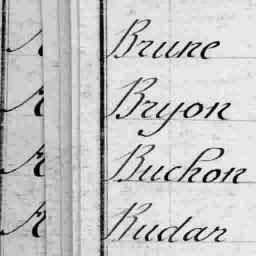 Brune
Bryon
Buchon
Budar